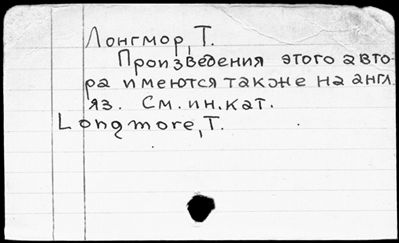 Лонгмор, Т.
Произведения этого авто-
ра имеются также на англ.
яз. См. ин. кат.
Longmore, T.